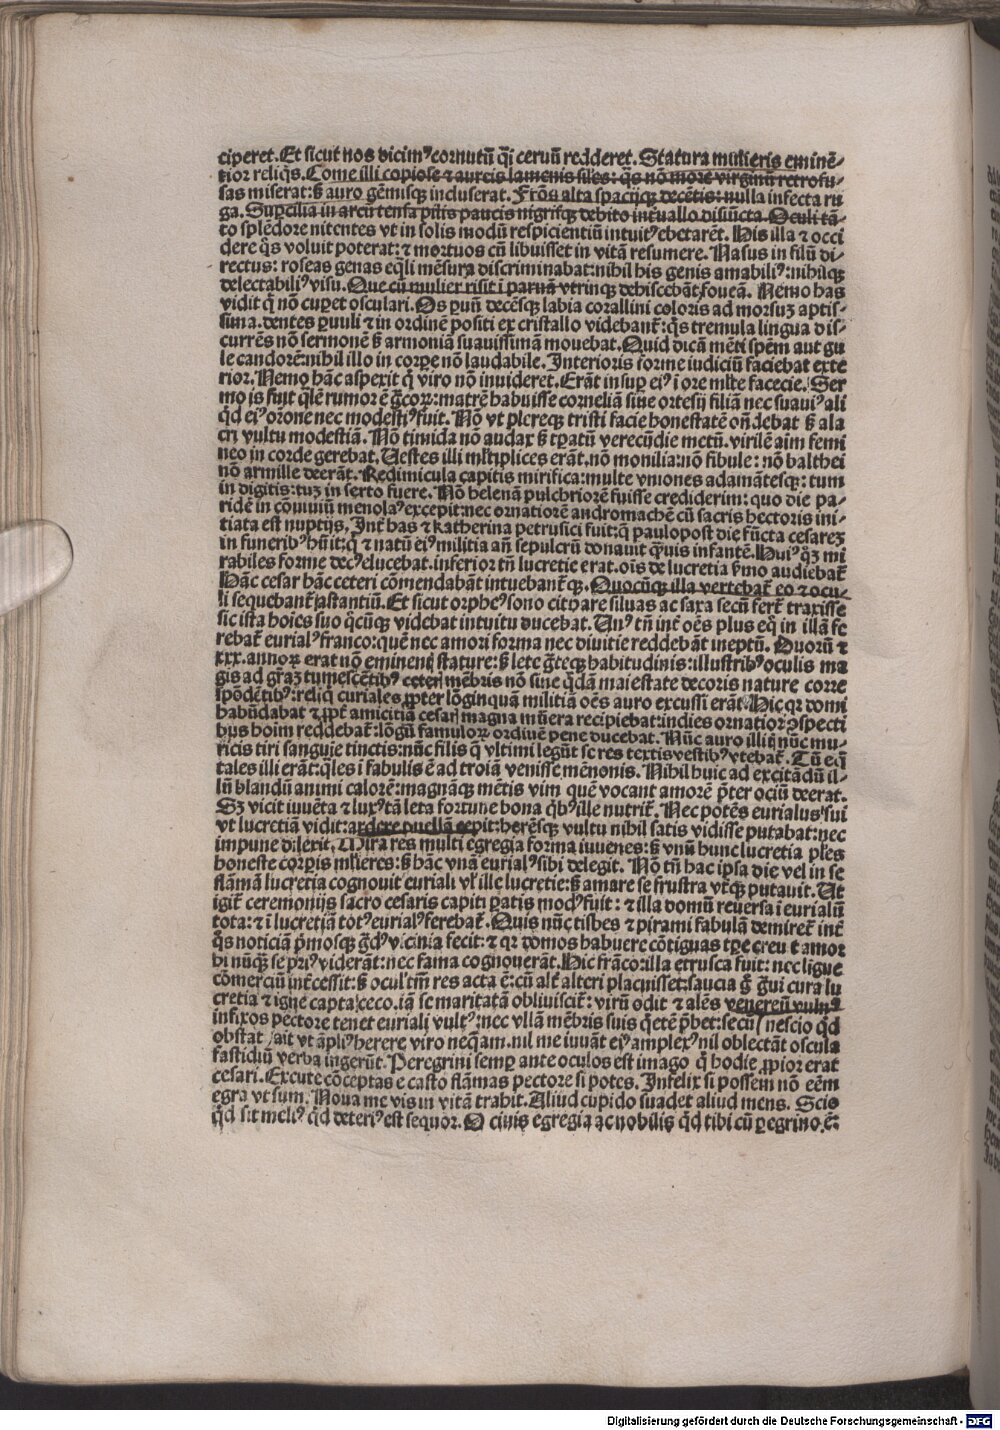 ciperet. Et sicut nos dicimꝰ cornutū q̄i ceruū redderet. Statura mulieris eminē-
tior reliq̄s. Come illi copiose ⁊ aureis lamenis siles: q̄s nō more virginū retrofu-
sas miserat: sꝫ auro gēmisqꝫ incluserat. Frōs alta spacijqꝫ decētis: nulla infecta ru
ga. Supcilia in arcū tensa pilis paucis nigrisqꝫ debito int̄uallo disiūcta. Oculi tā-
to splēdore nitentes vt in solis modū respicientiū intuitꝰ ebetarēt. His illa ⁊ occi
dere q̄s voluit poterat: ⁊ mortuos cū libuisset in vitā resumere. Nasus in filū di-
rectus: roseas genas eq̄li mēsura discriminabat: nihil his genis amabiliꝰ: nihilqꝫ
delectabiliꝰ visu. Que cū mulier risit ī paruā vtrinqꝫ dehiscebāt foueā. Nemo has
vidit q̄ nō cuꝑet osculari. Os ꝑuū decēsqꝫ labia corallini coloris ad morsuꝫ aptis-
sima. dentes ꝑuuli ⁊ in ordinē positi ex cristallo videbant̄: q̄s tremula lingua dis-
currēs nō sermonē sꝫ armoniā suauissimā mouebat. Quid dicā mēti spēm aut gu
le candorē: nihil illo in corꝑe nō laudabile. Interioris forme iudiciū faciebat exte
rior. Nemo hāc aspexit q̄ viro nō inuideret. Erāt insuꝑ eiꝰ ī ore mlte facecie. Ser
mo is fuit q̄lē rumor ē gͣcoꝝ: matrē habuisse corneliā siue ortesij filiā nec suauiꝰ ali
q̄d eiꝰ orone nec modestiꝰ fuit. Nō vt plereqꝫ tristi facie honestatē oñdebat sꝫ ala
cri vultu modestiā. Nō timida nō audax sꝫ tꝑatū verecūdie metū. virilē aīm femi
neo in corde gerebat. Uestes illi mltiplices erāt. nō monilia: nō fibule: nō balthei
nō armille deerāt. Redimicula capitis mirifica: multe vniones adamātesqꝫ: tum
in digitis: tuꝫ in serto fuere. Nō helenā pulchriorē fuisse crediderim: quo die pa-
ridē in cōuiuiū menolaꝰ excepit: nec ornatiorē andromachē cū sacris hectoris ini-
tiata est nuptijs. Int̄ has ⁊ katherina petrusici fuit: q̄ paulopost die fūcta cesareꝫ
in funeribꝰ hūit: q̄ ⁊ natū eiꝰ militia añ sepulcrū donauit q̄uis infantē. Huiꝰ q̄ꝫ mi
rabiles forme decꝰ elucebat. inferior tñ lucretie erat. oīs de lucretia s̄mo audiebat̄
Hāc cesar hāc ceteri cōmendabāt intuebant̄qꝫ. Quocūqꝫ illa vertebat̄ eo ⁊ ocu-
li sequebant̄ astantiū. Et sicut orpheꝰ sono cithare siluas ac saxa secū fert̄ traxisse
sic ista hoīes suo q̄cūqꝫ videbat intuitu ducebat. Unꝰ tñ int̄ oēs plus eq̄ in illā fe
rebat̄ eurialꝰ franco: quē nec amori forma nec diuitie reddebāt ineptū. Duorū ⁊
xxx. annoꝝ erat nō eminenti stature: sꝫ lete gͣteqꝫ habitudinis: illustribꝰ oculis ma
gis ad grāꝫ tumescētibꝰ ceteri mēbris nō sine q̄dā maiestate decoris nature corre
spōdētibꝰ: reliq̄ curiales ꝓpter lōginquā militiā oēs auro excussi erāt. Hic qꝛ domi
habūdabat ⁊ ꝓpt̄ amicitiā cesaris magna mūera recipiebat: indies ornatior ꝯspecti
bus hoīm reddebat̄: lōgū famuloꝝ ordinē pene ducebat. Nūc auro illitꝭ nūc mu-
ricis tiri sanguīe tinctis: nūc filis q̄ vltimi legūt seres textis vestibꝰ vtebat̄. Tū eq̄
tales illi erāt: q̄les ī fabulis ē ad troiā venisse mēnonis. Nihil huic ad excitādū il-
lū blandū animi calorē: magnāqꝫ mētis vim quē vocant amorē p̄ter ociū deerat.
Sꝫ vicit iuuēta ⁊ luxꝰ tā leta fortune bona q̄bꝰ ille nutrit̄. Nec potēs eurialus sui
vt lucretiā vidit: ardere puellā cepit: herēsqꝫ vultu nihil satis vidisse putabat: nec
impune dilexit. Mira res multi egregia forma iuuenes: sꝫ vnū hunc lucretia pl̄es
honeste corꝑis mlieres: sꝫ hāc vnā eurialꝰ sibi delegit. Nō tñ hac ipsa die vel in se
flāmā lucretia cognouit euriali vl̓ ille lucretie: sꝫ amare se frustra vtqꝫ putauit. Ut
igit̄ ceremonijs sacro cesaris capiti ꝑatis modꝰ fuit: ⁊ illa domū reuersa ī eurialū
tota: ⁊ ī lucretiā totꝰ eurialꝰ ferebat̄. Quis nūc tisbes ⁊ pirami fabulā demiret̄ int̄
q̄s noticiā p̄mosqꝫ gͣdꝰ vicinia fecit: ⁊ qꝛ domos habuere cōtiguas tꝑe creuit amor
hi nūqꝫ se priꝰ viderāt: nec fama cognouerāt. Hic frāco: illa etrusca fuit: nec ligue
cōmerciū int̄cessit: sꝫ oculꝭ tm̄ res acta ē: cū alt̄ alteri placuisset: saucia gͦ gͣui cura lu
cretia ⁊ igne capta ceco. iā se maritatā obliuiscit̄: virū odit ⁊ alēs venereū vulnꝰ
infixos pectore tenet euriali vultꝰ: nec vllā mēbris suis q̄etē p̄bet: secū / nescio q̄d
obstat / ait vt āpliꝰ herere viro neq̄am. nil me iuuāt eiꝰ amplexꝰ nil oblectāt oscula
fastidiū verba ingerūt. Peregrini semꝑ ante oculos est imago q̄ hodie ꝓpior erat
cesari. Excute cōceptas e casto flāmas pectore si potes. Infelix si possem nō eēm
egra vt sum. Noua me vis in vitā trahit. Aliud cupido suadet aliud mens. Scio
q̄d sit meliꝰ q̄d deteriꝰ est sequor. O ciuis egregia ac nobilis q̄d tibi cū ꝑegrino. ē:
Digitalisierung gefördert durch die Deutsche Forschungsgemeinschaft - DFG